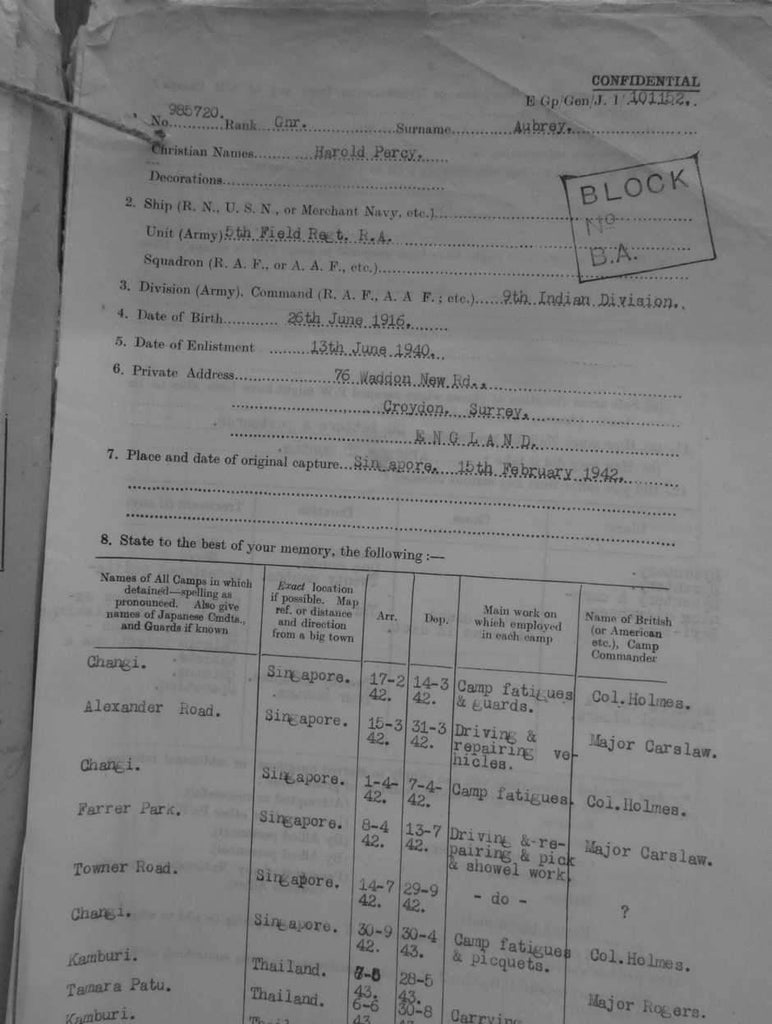 CONFIDENTIAL
E Gp/Gen/J. 1/101152.
No. 985720. Rank Gnr. Surname Aubrey.
Christian Names Harold Percy.
Decorations
BLOCK
No
B.A.
2. Ship (R. N., U. S. N., or Merchant Navy, etc.)
Unit (Army) 5th Field Regt. R.A.
Squadron (R. A. F., or A. A. F., etc.)
3. Division (Army), Command (R. A. F., A. A F. ; etc.) 9th Indian Division.
4. Date of Birth 26th June 1916.
5. Date of Enlistment 13th June 1940.
6. Private Address 76 Waddon New Rd.,
Croydon, Surrey.
ENGLAND.
7. Place and date of original capture Singapore. 15th February 1942.
8. State to the best of your memory, the following :—
Names of All Camps in which detained—spelling as pronounced. Also give names of Japanese Cmdts., and Guards if known
Exact location if possible. Map ref. or distance and direction from a big town
Arr.
Dep.
Main work on which employed in each camp
Name of British (or American etc.), Camp Commander
Changi. Singapore. 17-2 42. 14-3 42. Camp fatigues & guards. Col.Holmes.
Alexander Road. Singapore. 15-3 42. 31-3 42. Driving & repairing ve-hicles. Major Carslaw.
Changi. Singapore. 1-4- 42. 7-4- 42. Camp fatigues. Col.Holmes.
Farrer Park. Singapore. 8-4 42. 13-7 42. Driving &-re-pairing & pick & showel work. Major Carslaw.
Towner Road. Singapore. 14-7 42. 29-9 42. - do - ?
Changi. Singapore. 30-9 42. 30-4 43. Camp fatigues & picquets. Col.Holmes.
Kamburi. Thailand. 43. 28-5 43.
Tamara Patu. Thailand. 6-6 43. 30-8 Carrying Major Rogers.
Kamburi.